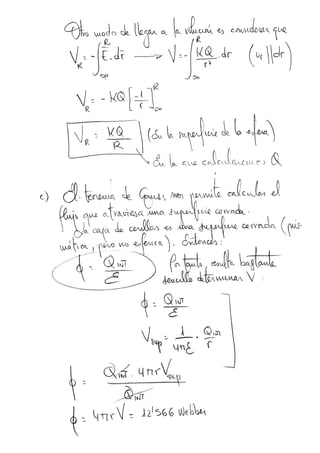 Otro modo de llegar a la solución es considerar que
V_R = -∫_∞^R E⃗·dr⃗ → V = -∫_∞^R KQ/r² · dr (ur || dr)
V_R = -KQ [-1/r]_∞^R
V_R = KQ/R (En la superficie de la esfera)
→ En la que calculamos Q
c) El teorema de Gauss nos permite calcular el
flujo que atraviesa una superficie cerrada.
La caja de cerillas es una superficie cerrada (pris-
mática, pero no esférica). Entonces:
ϕ = Q INT / ε Por tanto, resulta bastante
sencillo determinar V:
ϕ = Q INT / ε
V sup = 1/4πε · Q INT / r
ϕ = Q INT · 4πr V sup / Q INT
ϕ = 4πrV = 12'566 Webber